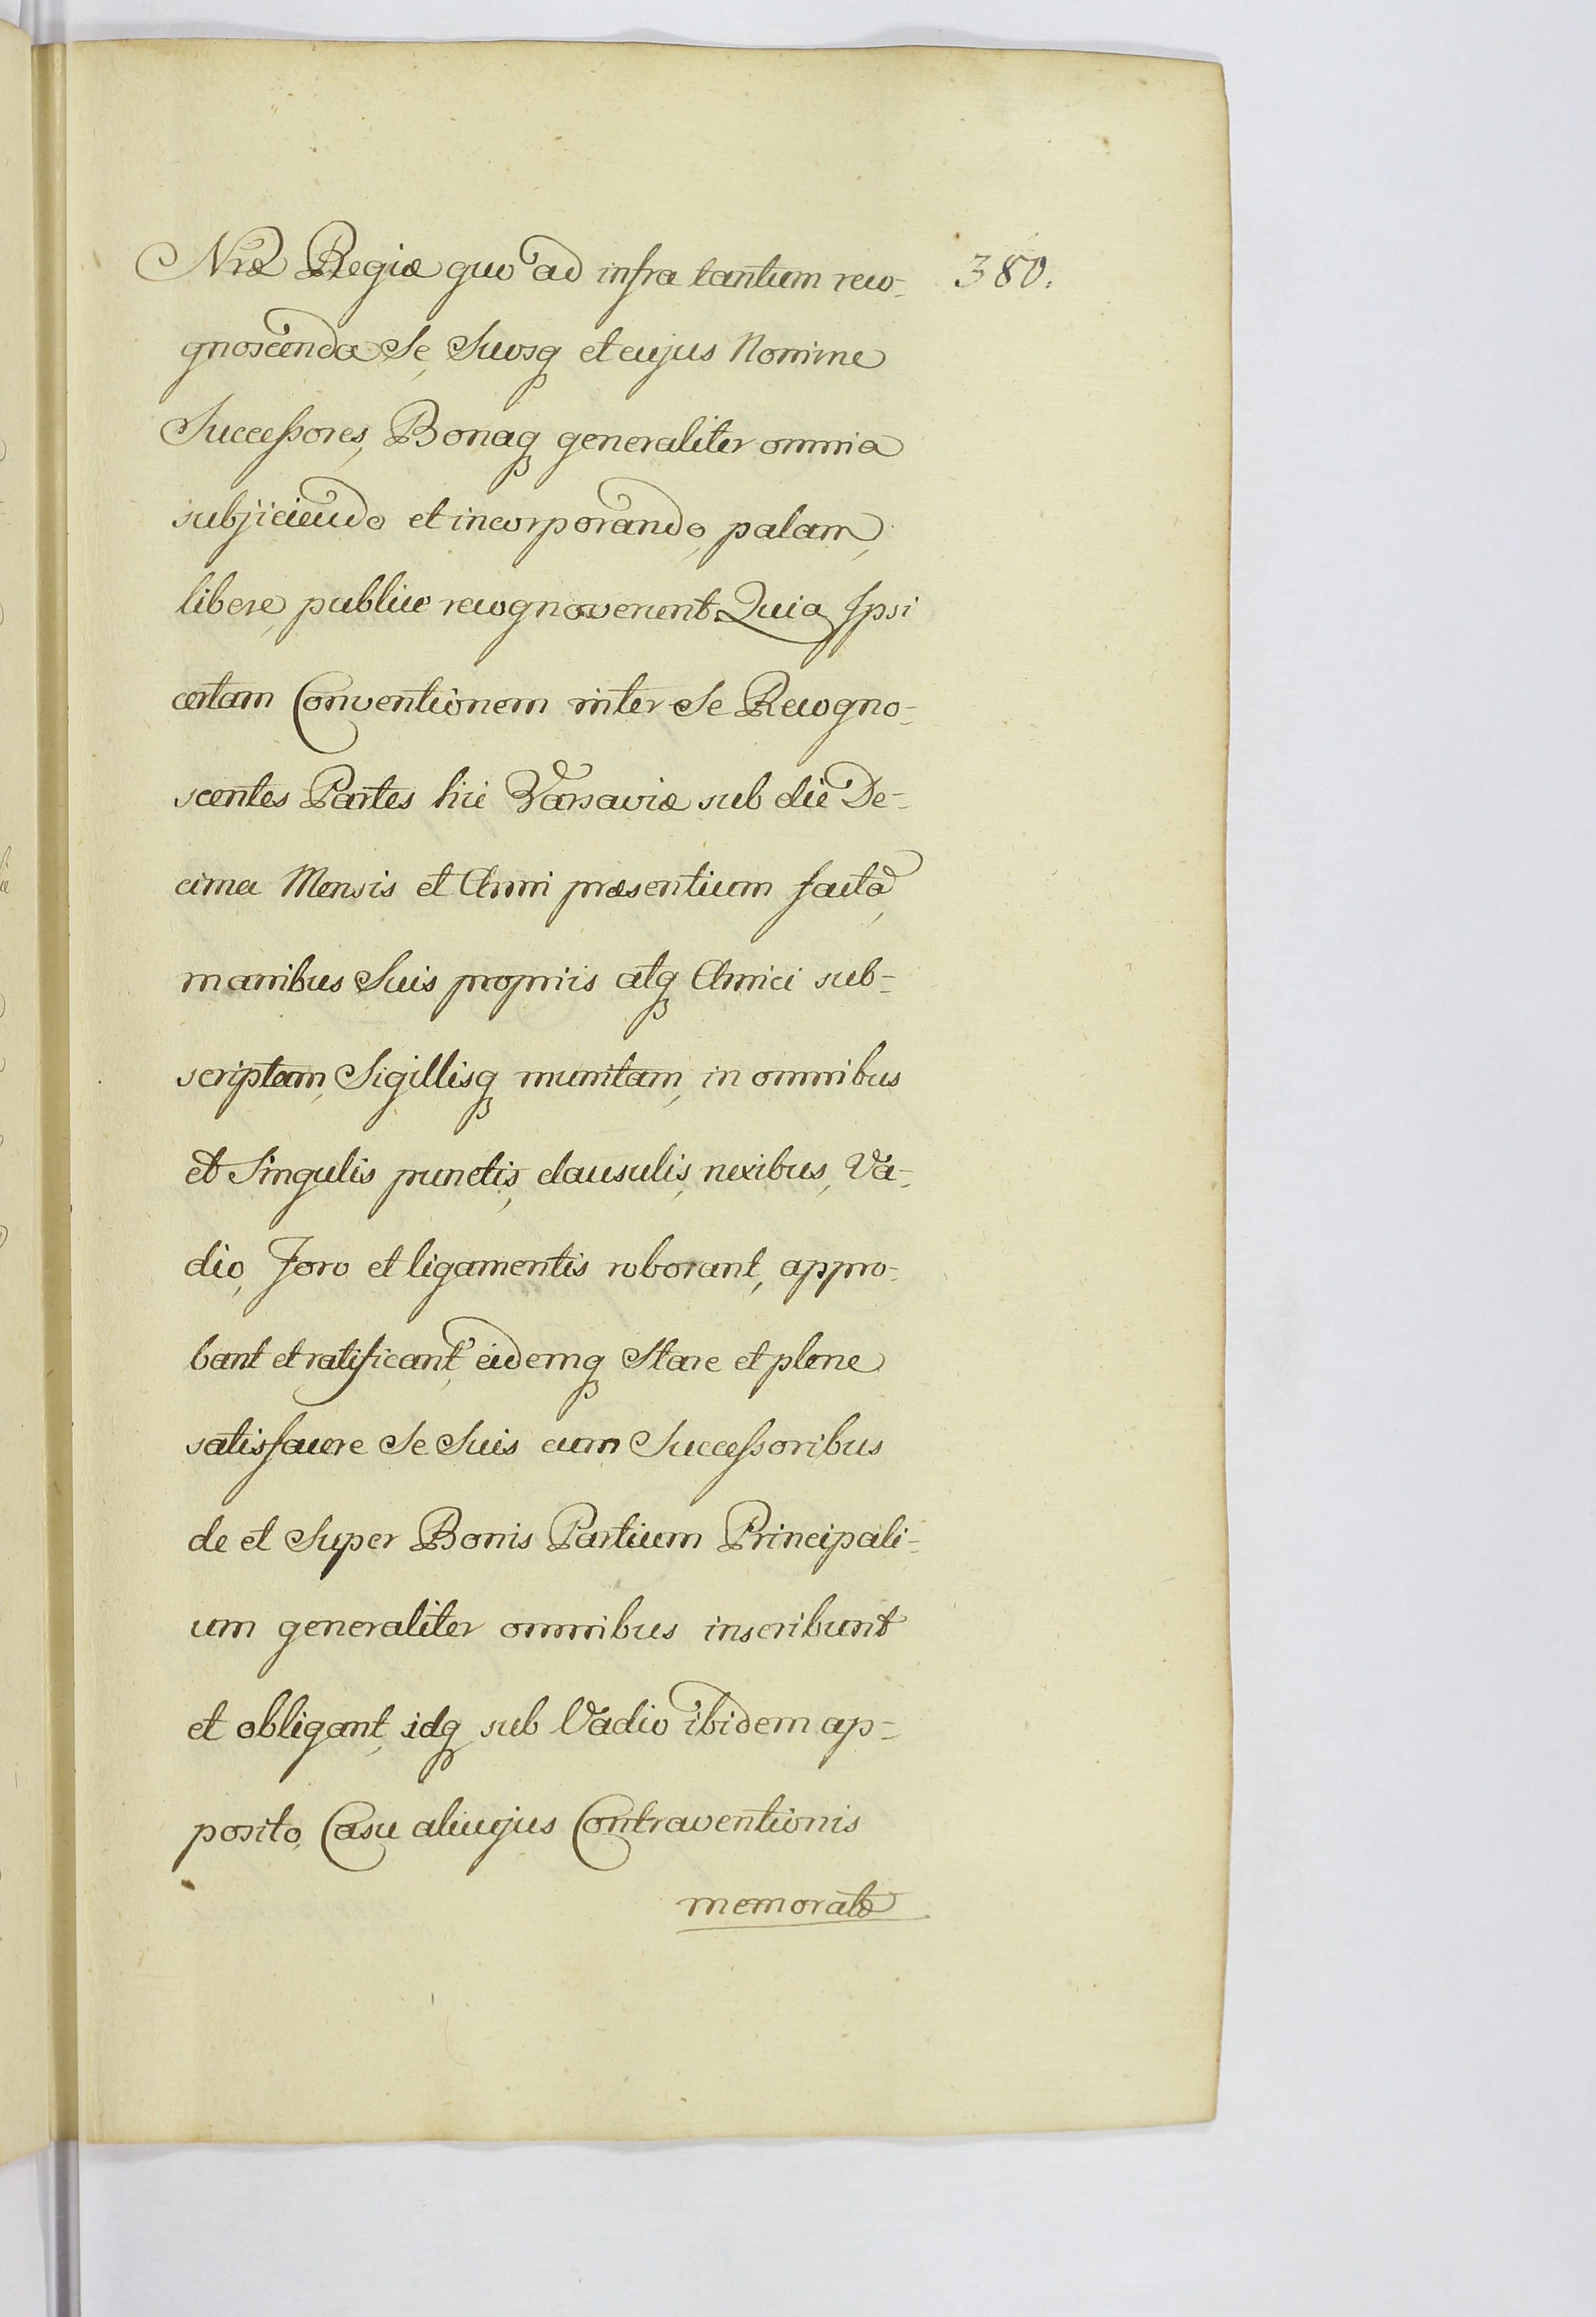 Nræ Regiæ quo ad infra tantum reco- 380.
gnoscenda Se, Suosq et cujus Nomine
Successores, Bonaq generaliter omnia
subjiciendo et incorporando, palam,
libere, publice recognoverunt. Quia Ipsi
certam Conventionem inter Se Recogno-
scentes Partes hic Varsaviæ sub die De-
cima Mensis et Anni præsentium facta,
manibus Suis propriis atq Amici sub-
scriptam, Sigillisq munitam, in omnibus
et Singulis punctis, clausulis, nexibus, Va-
dio, Foro et ligamentis roborant, appro-
bant et ratificant, eidemq Stare et plene
satisfacere Se Suis cum Successoribus
de et Super Bonis Partium Principali-
um generaliter omnibus inscribunt
et obligant, idq sub Vadio ibidem ap-
posito, Casu alicujus Contraventionis
memorato